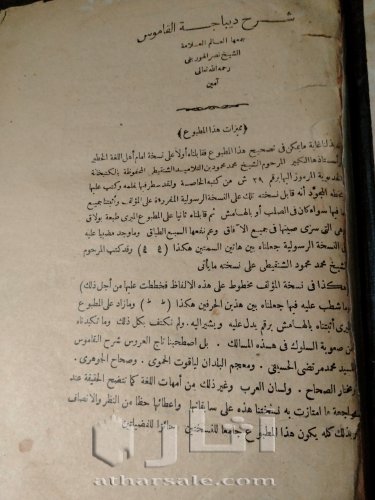 شرح ديباجة القاموس
جمعها العالم العلامة
الشيخ نصر الهوريني
رحمه الله تعالى
آمين
(مميزات هذا المطبوع)
غاية ما يمكن فى تصحيح هذا المطبوع فقابلناه أولا على نسخة امام أهل اللغة الخطير
الكبير المرحوم الشيخ محمد محمود بن التلاميد الشنقيطى المحفوظة بالكتبخانة
المرموز اليها برقم ٣٩ ش من كتبه الخاصة ولقد سطر فيها بقلمه وكتب عليها
أنه قابل نسخته تلك على النسخة الرسولية المقروءة على المؤلف وأثبتنا جميع
فيها سواء كان فى الصلب أو بالهامش ثم قابلناه ثانيا على المطبوع الميرى طبعة بولاق
وهى التى سرى صيتها فى جميع الآفاق وعم نفعها السبع الطباق وما وجد مضببا عليه
النسخة الرسولية جعلناه بين هاتين السمتين هكذا (٤ ٤) وقد كتب المرحوم
الشيخ محمد محمود الشنقيطى على نسخته ما يأتى
هكذا فى نسخة المؤلف مخطوط على هذه الالفاظ فخططت عليها من أجل ذلك)
وما شطب عليه فيها جعلناه بين هذين الحرفين هكذا (ط ط) وما زاد على المطبوع
أثبتناه بالهامش برقم يدل عليه ويشير اليه. ولم نكتف بكل ذلك وما تكبدناه
من صعوبة السلوك فى هذه المسالك. بل اصطحبنا تاج العروس شرح القاموس
للسيد محمد مرتضى الحسينى. ومعجم البلدان لياقوت الحموى. وصحاح الجوهرى.
ومختار الصحاح. ولسان العرب وغير ذلك من أمهات اللغة كما تتضح الحقيقة عند
مراجعة ما امتازت به نسختنا هذه على سابقاتها واعطائها حظا من النظر والانصاف
وبذلك كله يكون هذا المطبوع جامعا للنسختين حائزا للفضيلتين
آثار
atharsale.com